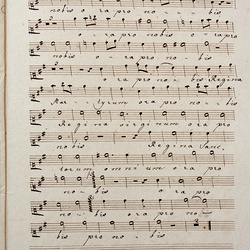 nobis ora pro nobis
ora pro nobis ora pro
nobis ora pro nobis
ora pro nobis Regina
Martyrum ora pro nobis
Regina virginum ora pro
nobis Regina Sanc.
torum omnium ora pro
nobis ora pro
nobis ora pro no
bis pro nobis